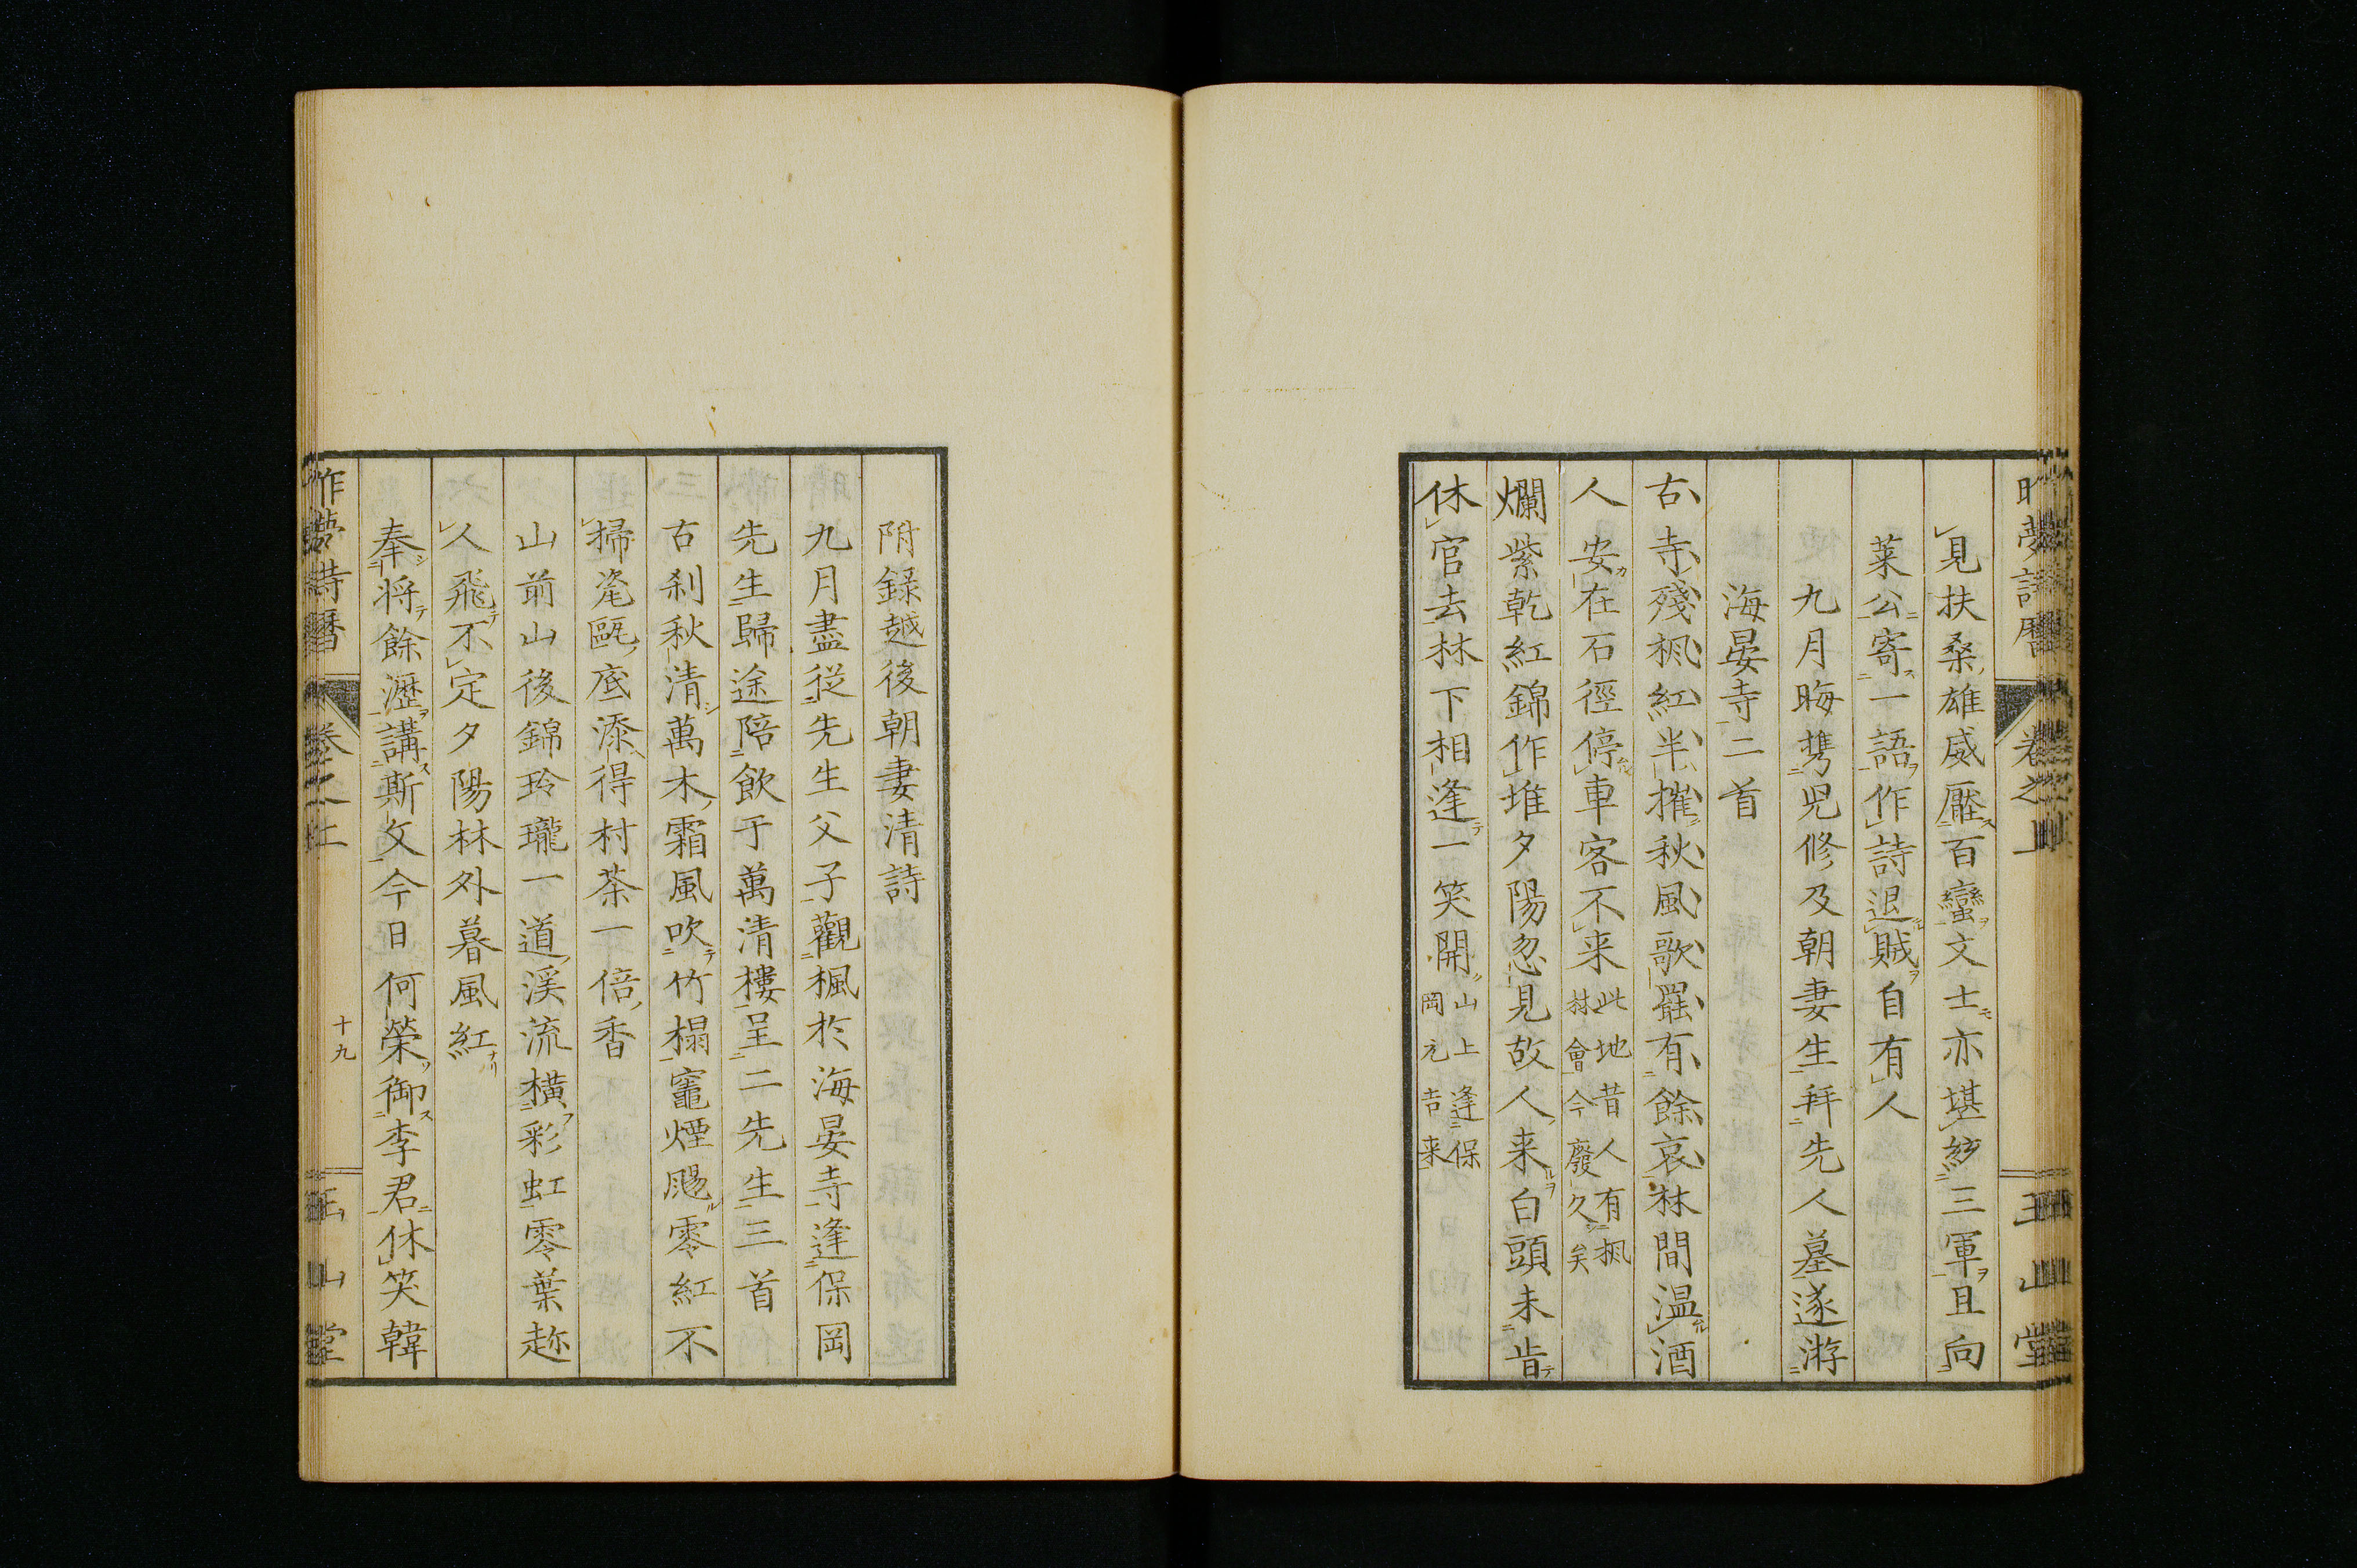 見扶桑雄威壓百蠻文士亦堪紗三軍且向
萊公寄一語作詩退賊自有人
九月晦携児修及朝妻生拜先人墓遂游
海晏寺二首
古寺殘楓紅半摧秋風歌罷有餘哀林間温酒
人安在石徑停車客不来此地昔人有楓林會今廢久矣
爛紫乾紅錦作堆夕陽忽見故人来白頭未肯
休官去林下相逢一笑開山上逢保岡元吉来
昨夢詩暦 卷之上 玉山堂
附録越後朝妻清詩
九月盡従先生父子觀楓於海晏寺逢保岡
先生歸途陪飲于萬清樓呈二先生三首
古刹秋清萬木霜風吹竹榻竈煙颺零紅不
掃瓷甌底添得村茶一倍香
山前山後錦玲瓏一道溪流横彩虹零葉趂
人飛不定夕陽林外暮風紅
奉將餘瀝講斯文今日何榮御李君休笑韓
昨夢詩暦 卷之上 十九 玉山堂